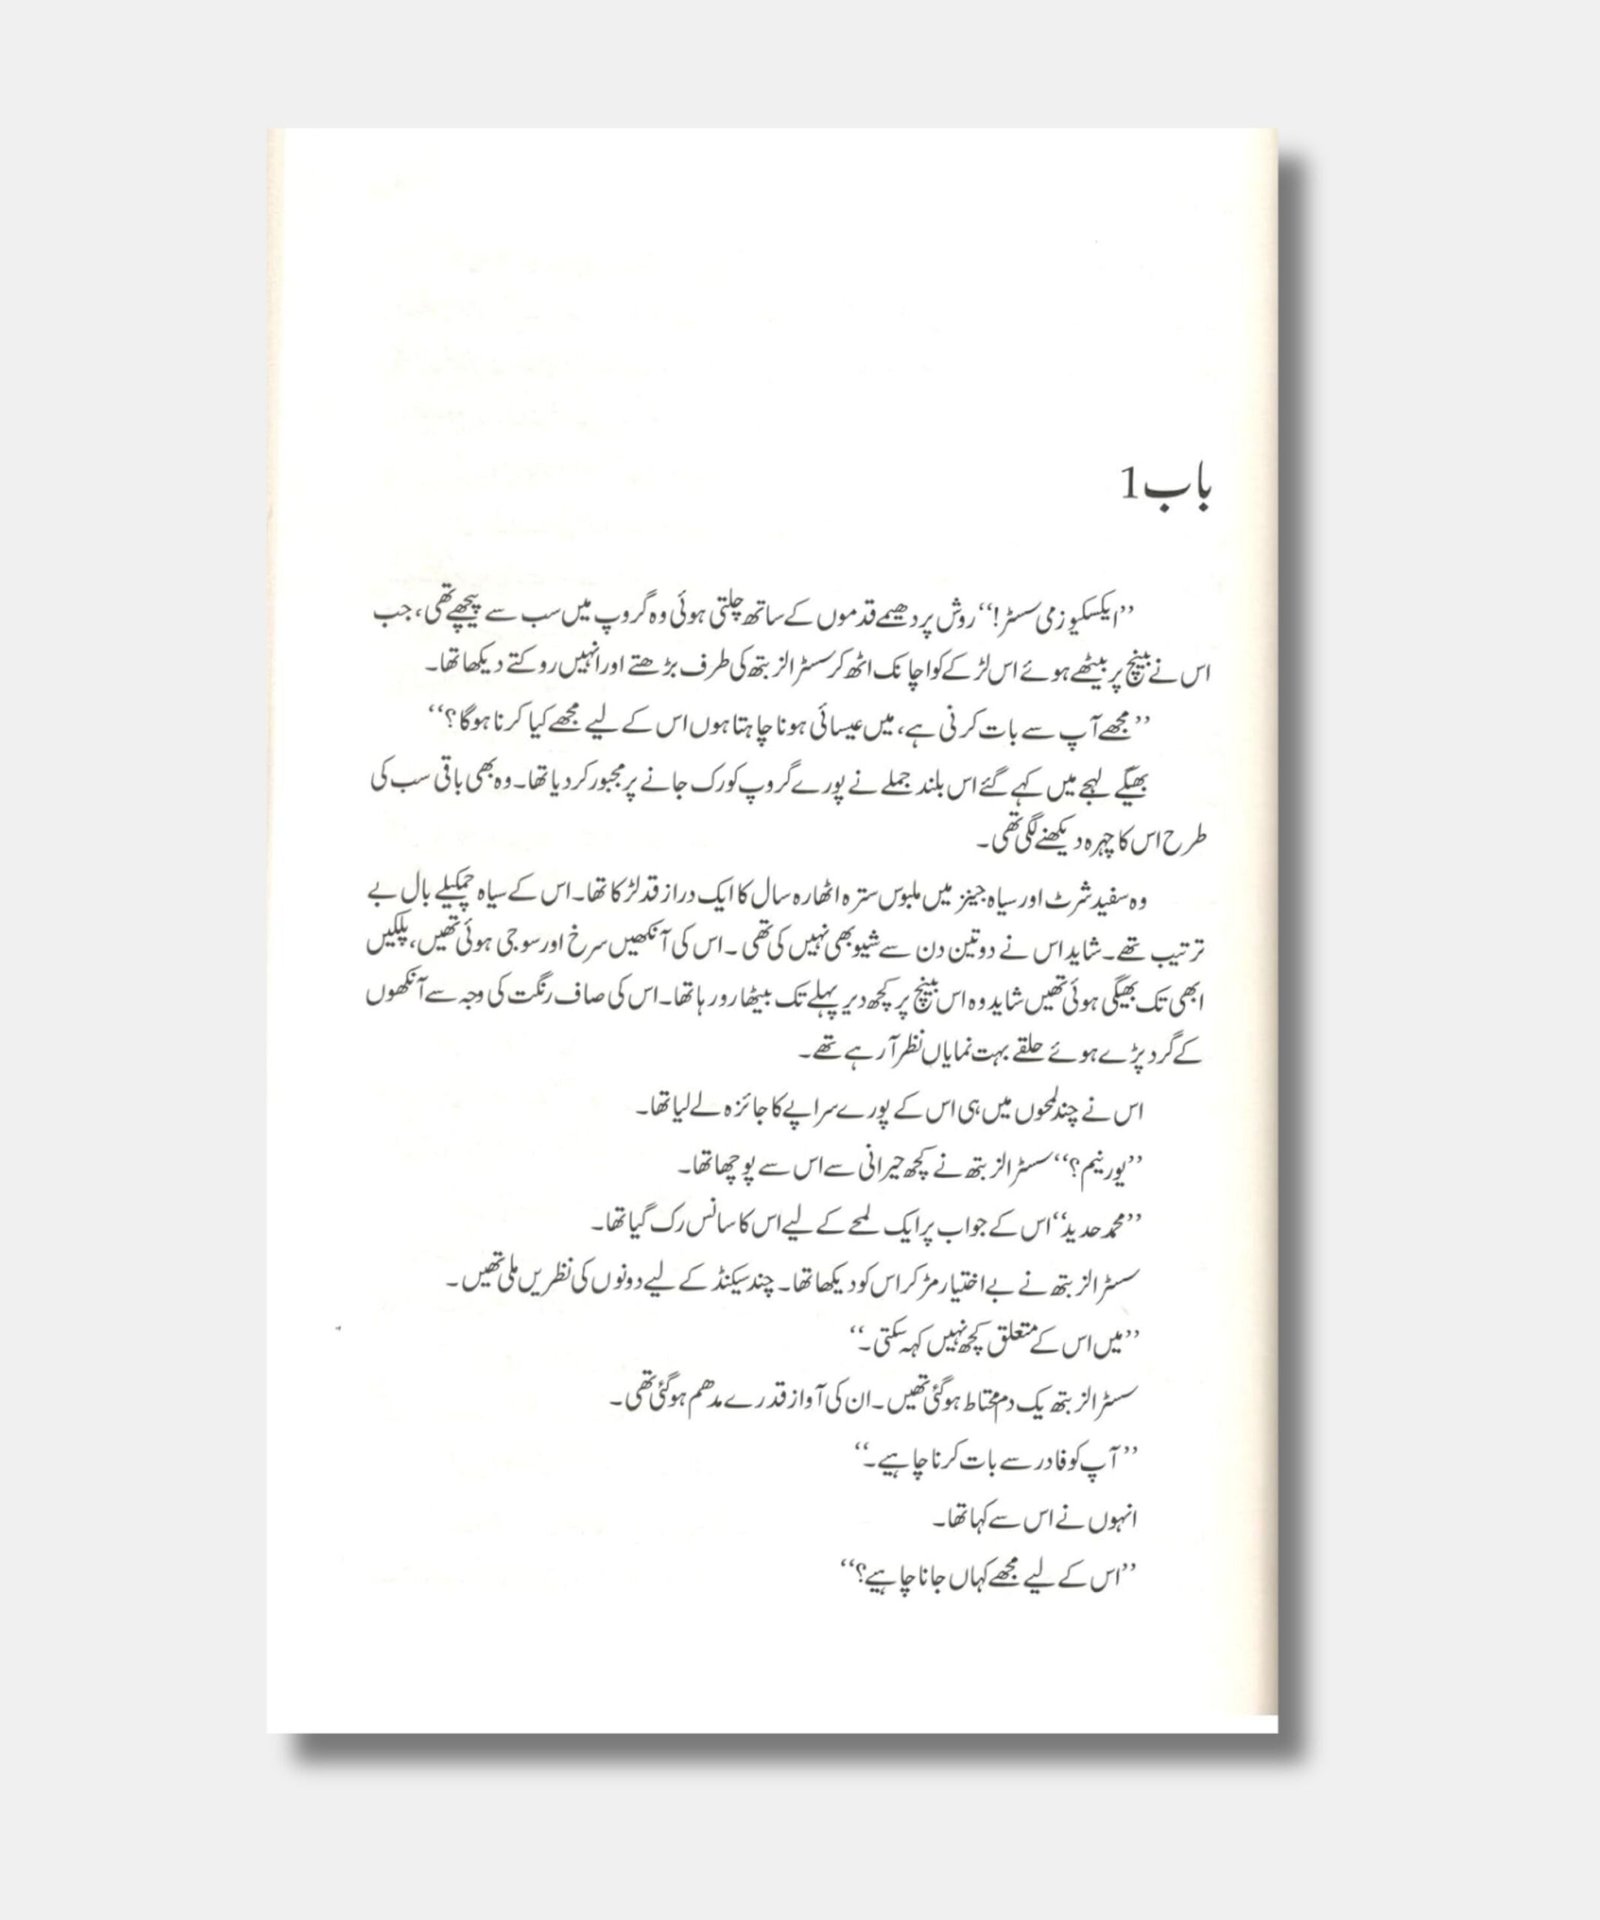 باب 1
’’ایکسکیوزمی سسٹر!‘‘ روش پر دھیمے قدموں کے ساتھ چلتی ہوئی وہ گروپ میں سب سے پیچھے تھی، جب
اس نے بینچ پر بیٹھے ہوئے اس لڑکے کو اچانک اٹھ کر سسٹر الزبتھ کی طرف بڑھتے اور انہیں روکتے دیکھا تھا۔
’’مجھے آپ سے بات کرنی ہے، میں عیسائی ہونا چاہتا ہوں اس کے لیے مجھے کیا کرنا ہوگا؟‘‘
بھیگے لہجے میں کہے گئے اس بلند جملے نے پورے گروپ کو رک جانے پر مجبور کر دیا تھا۔ وہ بھی باقی سب کی
طرح اس کا چہرہ دیکھنے لگی تھی۔
وہ سفید شرٹ اور سیاہ جینز میں ملبوس سترہ اٹھارہ سال کا ایک دراز قد لڑکا تھا۔ اس کے سیاہ چمکیلے بال بے
ترتیب تھے۔ شاید اس نے دو تین دن سے شیو بھی نہیں کی تھی۔ اس کی آنکھیں سرخ اور سوجی ہوئی تھیں، پلکیں
ابھی تک بھیگی ہوئی تھیں شاید وہ اس بینچ پر کچھ دیر پہلے تک بیٹھا رو رہا تھا۔ اس کی صاف رنگت کی وجہ سے آنکھوں
کے گرد پڑے ہوئے حلقے بہت نمایاں نظر آ رہے تھے۔
اس نے چند لمحوں میں ہی اس کے پورے سراپے کا جائزہ لے لیا تھا۔
’’یور نیم؟‘‘ سسٹر الزبتھ نے کچھ حیرانی سے اس سے پوچھا تھا۔
’’محمد حدید‘‘ اس کے جواب پر ایک لمحے کے لیے اس کا سانس رک گیا تھا۔
سسٹر الزبتھ نے بے اختیار مڑ کر اس کو دیکھا تھا۔ چند سیکنڈ کے لیے دونوں کی نظریں ملی تھیں۔
’’میں اس کے متعلق کچھ نہیں کہہ سکتی۔‘‘
سسٹر الزبتھ یک دم محتاط ہو گئی تھیں۔ ان کی آواز قدرے مدھم ہو گئی تھی۔
’’آپ کو فادر سے بات کرنا چاہیے۔‘‘
انہوں نے اس سے کہا تھا۔
’’اس کے لیے مجھے کہاں جانا چاہیے؟‘‘